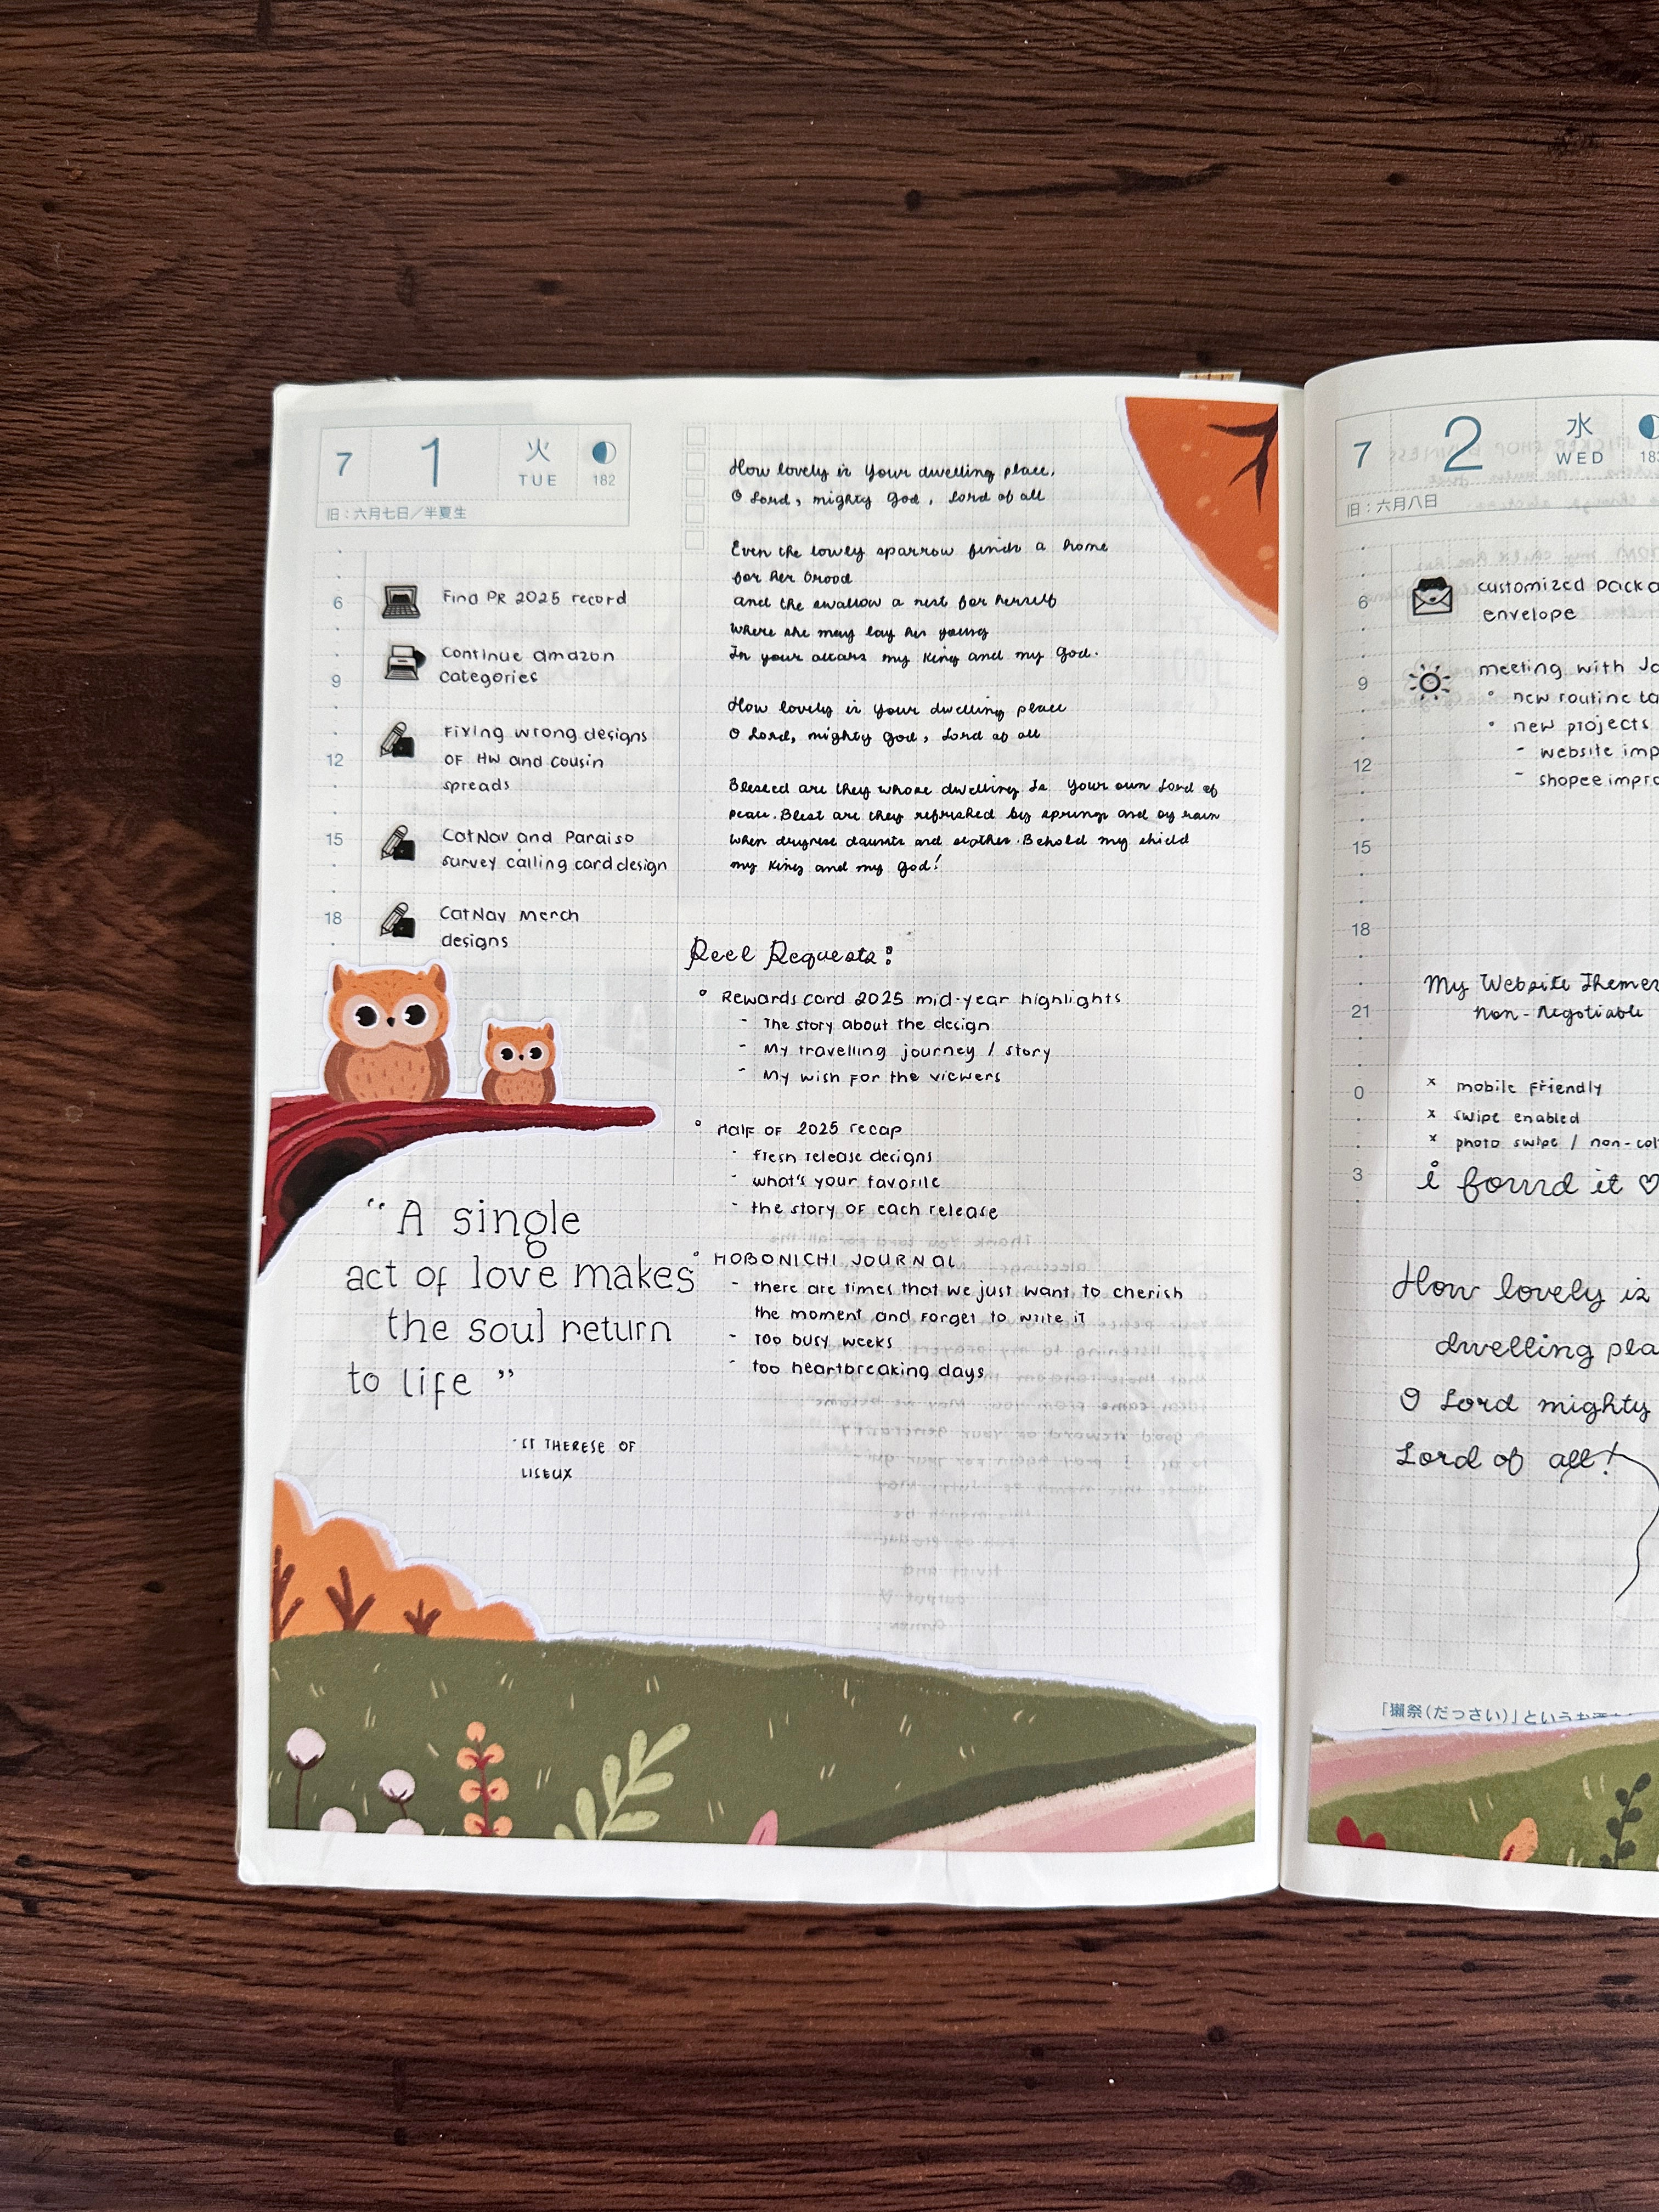 7 1 火 TUE 182
旧：六月七日／半夏生
6
Find PR 2025 record
Continue amazon
9
categories
Fixing wrong designs
12
OF HW and cousin
spreads
15
CatNav and Paraiso
survey calling card design
18
CatNav Merch
designs
"A single
act of love makes
the soul return
to life"
-ST THERESE OF
LISEUX
How lovely is Your dwelling place,
O Lord, mighty God, Lord of all
Even the lowly sparrow finds a home
for her brood
and the swallow a nest for herself
Where she may lay her young
In your altars my King and my God.
How lovely is Your dwelling place
O Lord, mighty God, Lord of all
Blessed are they whose dwelling Is Your own Lord of
peace. Blest are they refreshed by springs and by rain
When dryness daunts and scathes. Behold my shield
my King and my God!
Reel Requests:
° Rewards card 2025 mid-year highlights
- The story about the design
- My travelling journey / story
- My wish for the viewers
° Half OF 2025 recap
- fresh release designs
- what's your favorite
- the story OF each release
° HOBONICHI JOURNAL
- there are times that we just want to cherish
the moment and Forget to write it
- Too busy weeks
- too heartbreaking days
7 2 水 WED
旧：六月八日
6
customized
envelope
9
meeting with
° new routine
• new projects
12
- website
- shopee
15
18
My Website
21
Non-Negotiable
0
x mobile Friendly
x swipe enabled
x photo swipe /
3
i found it ♡
How lovely is
dwelling
O Lord mighty
Lord of all!
「獺祭（だっさい）」という